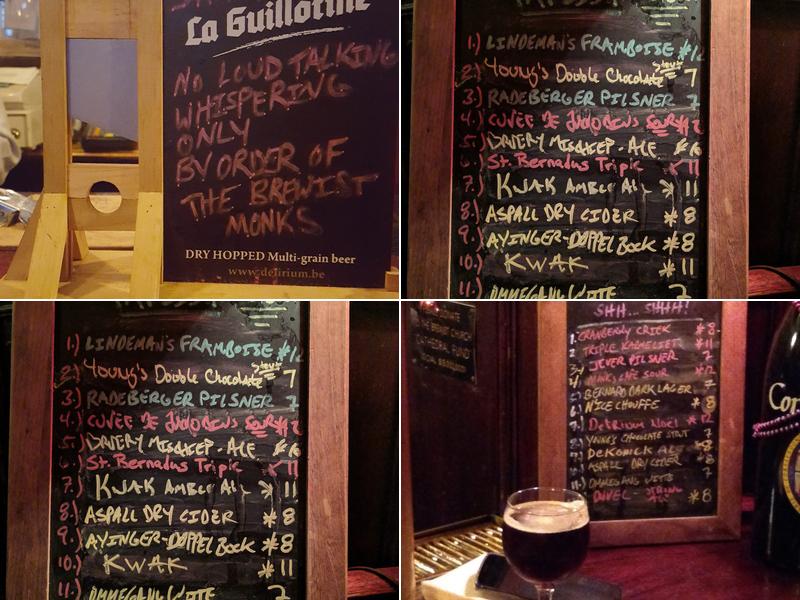 La Guillotine
No LOUD TALKING
WHISPERING
ONLY
BY ORDER OF
THE BREWIST
MONKS
DRY HOPPED Multi-grain beer
www.delirium.be
1.) LINDEMAN'S FRAMBOISE
2.) YOUNG'S DOUBLE Chocolate Stout 7
3.) RADEBERGER PILSNER 7
4.) CUVÉE DE
5.) MISCHIEF-ALE
6.) St. Bernadus Triple 11
7.) KWAK AMBER 11
8.) ASPALL DRY CIDER *8
9.) AYINGER-DOPPELBOCK *8
10.) KWAK *11
11.) OMMEGANG WITTE 7
1.) LINDEMAN'S FRAMBOISE
2.) YOUNG'S DOUBLE Chocolate Stout 7
3.) RADEBERGER PILSNER 7
4.) CUVÉE DE
5.) MISCHIEF-ALE
6.) St. Bernadus Triple 11
7.) KWAK AMBER 11
8.) ASPALL DRY CIDER *8
9.) AYINGER-DOPPELBOCK *8
10.) KWAK *11
11.) OMMEGANG WITTE 7
SHH... SHHH!
1. CRANBERRY CRIEK *8
2. TRIPLE KARMELIET
3. JEVER PILSNER 7
4. MONKS CAFE SOUR
5. BERNARD DARK LAGER 7
6. N'ICE CHOUFFE *8
7. DELIRIUM NOEL
8. YOUNG'S CHOCOLATE STOUT 7
9. DEKONICK ALE
10. ASPALL DRY CIDER *8
11. OMMEGANG WITTE 7
DUVEL - STRONG ALE *8
Cor